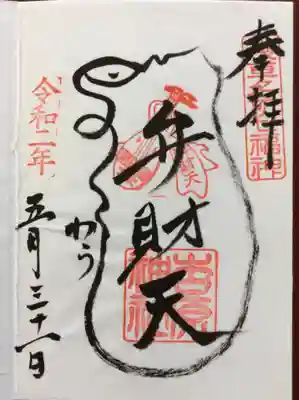 奉拝
弁財天
吉原神社
令和二年
五月三十一日